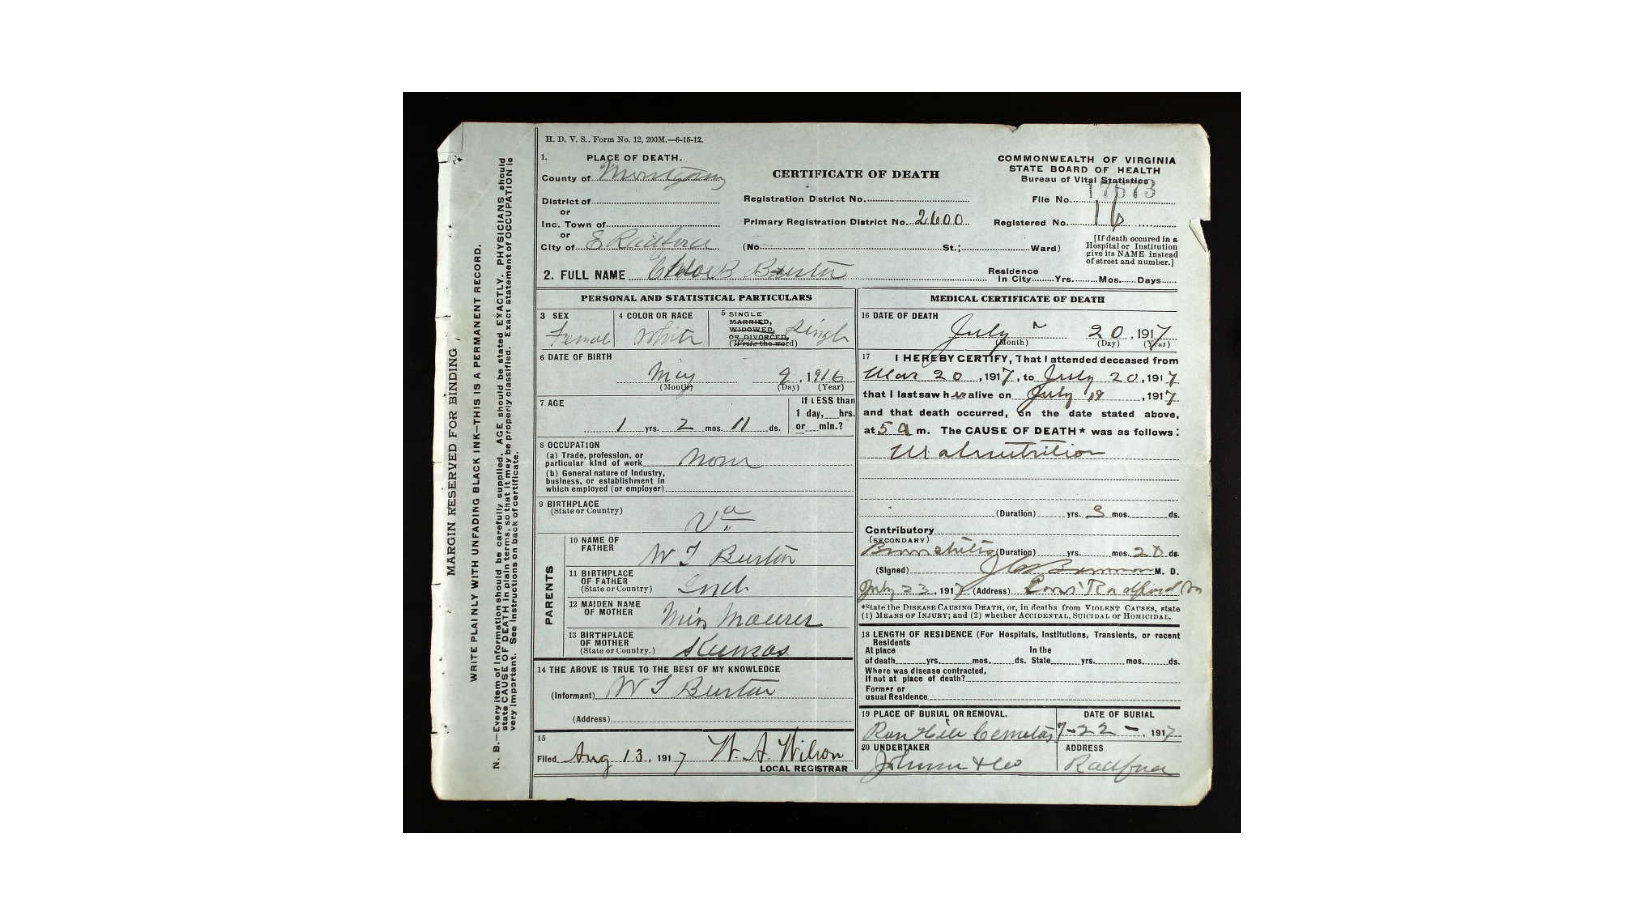 H. D. V. S., Form No. 12, 200M.—6-15-12.
1. PLACE OF DEATH.
County of
District of
or
Inc. Town of
or
City of E Radford
CERTIFICATE OF DEATH
Registration District No.
Primary Registration District No. 2600
(No. St.; Ward)
COMMONWEALTH OF VIRGINIA
STATE BOARD OF HEALTH
Bureau of Vital Statistics
File No. 17673
Registered No. 16
[If death occured in a
Hospital or Institution
give its NAME instead
of street and number.]
2. FULL NAME
Residence
In City Yrs. Mos. Days
PERSONAL AND STATISTICAL PARTICULARS
3 SEX
Female
4 COLOR OR RACE
White
5 SINGLE
MARRIED,
WIDOWED,
OR DIVORCED,
(Write the word)
Single
6 DATE OF BIRTH
May 9, 1916
(Month) (Day) (Year)
7 AGE
1 yrs. 2 mos. 11 ds.
If LESS than
1 day, hrs.
or min.?
8 OCCUPATION
(a) Trade, profession, or
particular kind of work None
(b) General nature of Industry,
business, or establishment in
which employed (or employer)
9 BIRTHPLACE
(State or Country)
Va
PARENTS
10 NAME OF
FATHER
W T Burton
11 BIRTHPLACE
OF FATHER
(State or Country)
Ind.
12 MAIDEN NAME
OF MOTHER
Miss Maurer
13 BIRTHPLACE
OF MOTHER
(State or Country.)
Kansas
14 THE ABOVE IS TRUE TO THE BEST OF MY KNOWLEDGE
(Informant) W T Burton
(Address)
15
Filed Aug 13, 1917 W. A. Wilson
LOCAL REGISTRAR
MEDICAL CERTIFICATE OF DEATH
16 DATE OF DEATH
July 20, 1917
(Month) (Day) (Year)
17 I HEREBY CERTIFY, That I attended deceased from
Mar 20, 1917, to July 20, 1917
that I last saw her alive on July 19, 1917
and that death occurred, on the date stated above,
at 5 a m. The CAUSE OF DEATH* was as follows:
Malnutrition
(Duration) yrs. 3 mos. ds.
Contributory
(SECONDARY)
Bronchitis (Duration) yrs. mos. 20 ds.
(Signed) M. D.
July 23, 1917 (Address) East Radford Va
*State the DISEASE CAUSING DEATH, or, in deaths from VIOLENT CAUSES, state
(1) MEANS OF INJURY; and (2) whether ACCIDENTAL, SUICIDAL or HOMICIDAL.
18 LENGTH OF RESIDENCE (For Hospitals, Institutions, Transients, or recent
Residents
At place In the
of death yrs. mos. ds. State yrs. mos. ds.
Where was disease contracted,
if not at place of death?
Former or
usual Residence
19 PLACE OF BURIAL OR REMOVAL.
DATE OF BURIAL
7-22-, 1917
20 UNDERTAKER
ADDRESS
Radford
MARGIN RESERVED FOR BINDING
WRITE PLAINLY WITH UNFADING BLACK INK—THIS IS A PERMANENT RECORD.
N. B.—Every item of information should be carefully supplied. AGE should be stated EXACTLY. PHYSICIANS should
state CAUSE OF DEATH in plain terms, so that it may be properly classified. Exact statement of OCCUPATION is
very important. See instructions on back of certificate.